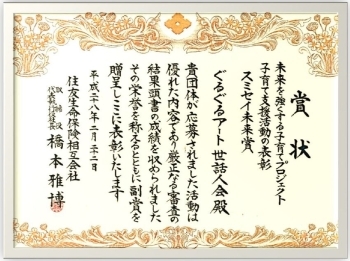 賞状
未来を強くする子育てプロジェクト
子育て支援活動の表彰
スミセイ未来賞
ぐるぐるアート世話人会殿
貴団体が応募されました活動は
優れた内容であり厳正なる審査の
結果頭書の成績を収められました
その栄誉を称えるとともに副賞を
贈呈しここに表彰いたします
平成二十八年二月二十二日
住友生命保険相互会社
取締役
代表執行役社長
橋本雅博